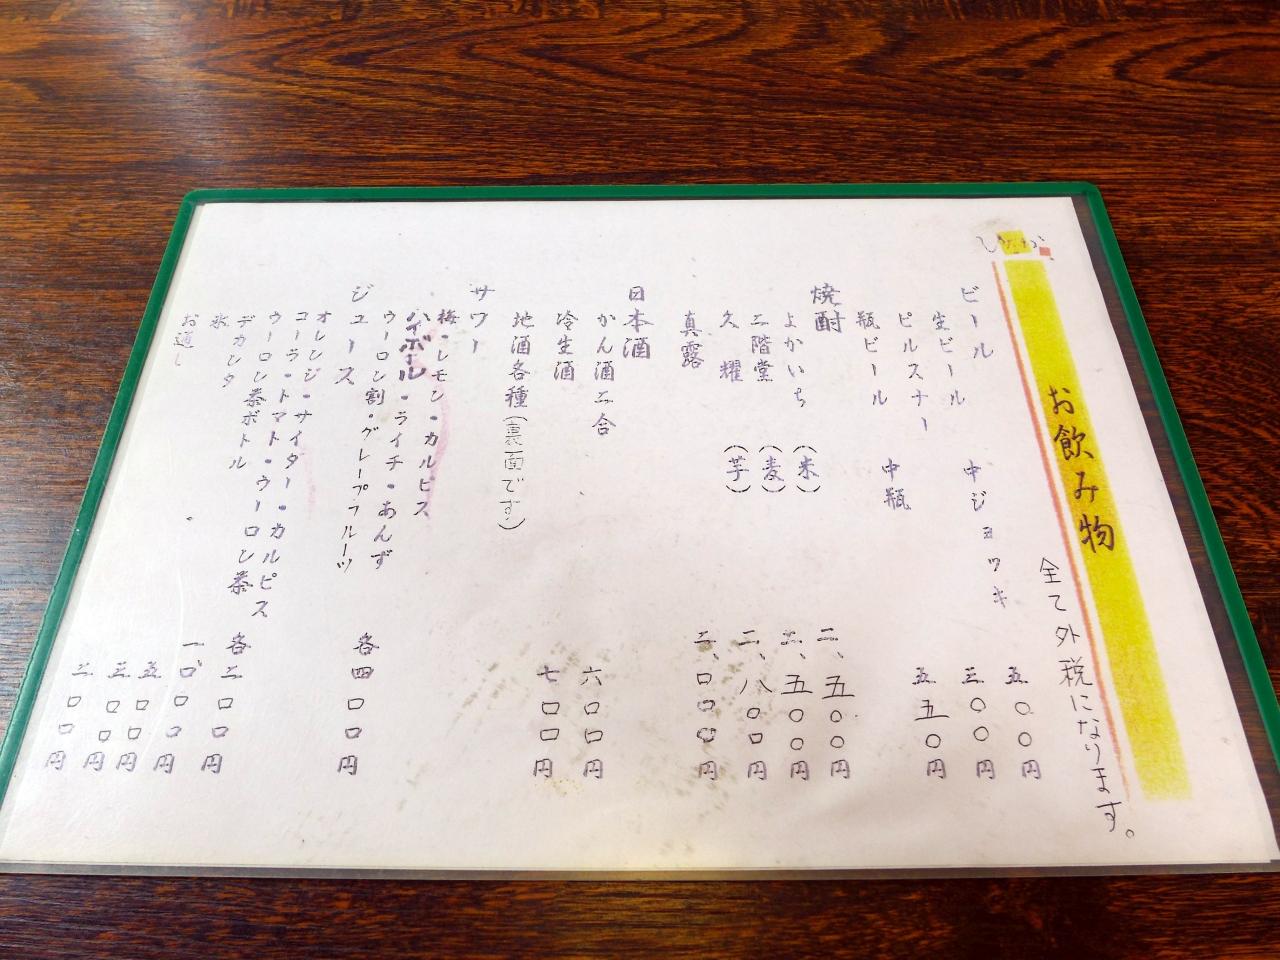 お飲み物
全て外税になります。
ビール
生ビール 中ジョッキ 五〇〇円
ピルスナー 三〇〇円
瓶ビール 中瓶 五五〇円
焼酎
よかいち (米) 二、五〇〇円
二階堂 (麦) 二、五〇〇円
久耀 (芋) 二、八〇〇円
真露 二、〇〇〇円
日本酒
かん酒二合 六〇〇円
冷生酒 七〇〇円
地酒各種(裏面です)
サワー
梅・レモン・カルピス
ハイボール・ライチ・あんず
ウーロン割・グレープフルーツ 各四〇〇円
ジュース
オレンジ・サイダー・カルピス
コーラ・トマト・ウーロン茶 各二〇〇円
ウーロン茶ボトル 一、〇〇〇円
デカンタ 五〇〇円
氷 三〇〇円
お通し 二〇〇円